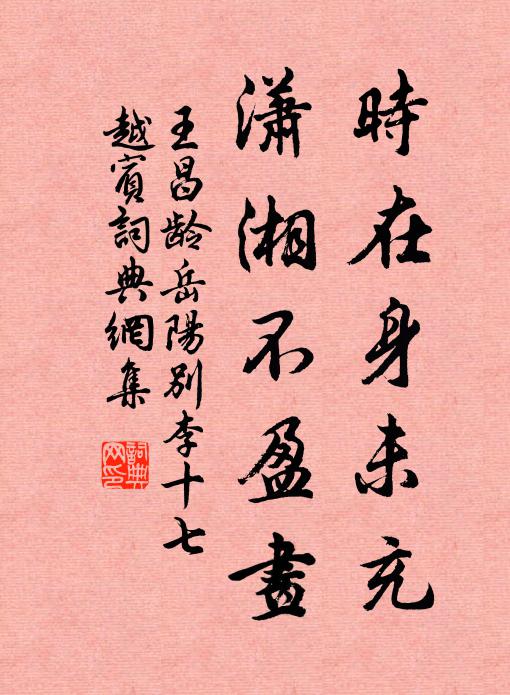 時在身未充
瀟湘不盈畫
王昌龄岳陽別李十七
越賓詞典網集
詞典网印